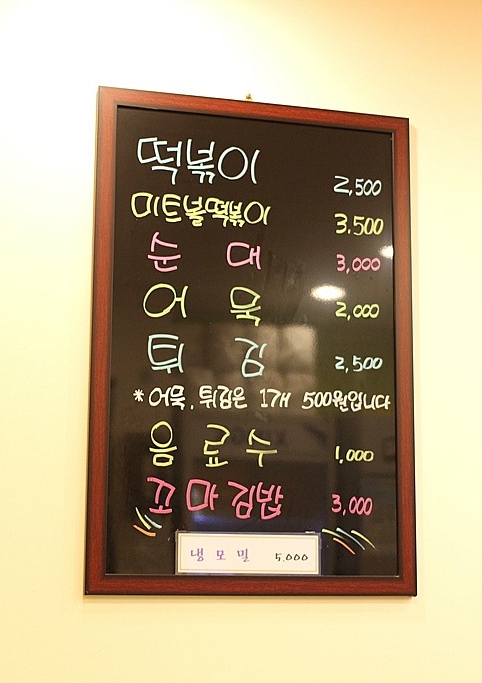 떡볶이 2,500
미트볼떡볶이 3.500
순 대 3,000
어 묵 2,000
튀 김 2,500
* 어묵, 튀김은 1개 500원입니다
음 료 수 1,000
꼬 마 김밥 3,000
냉 모 밀 5,000